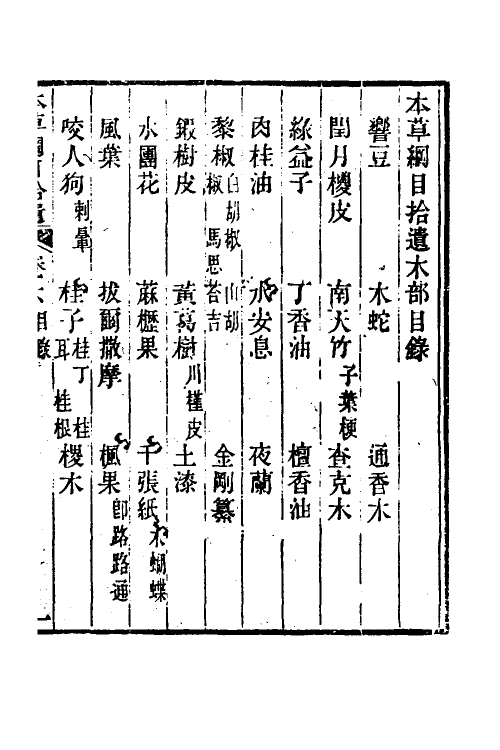 本草綱目拾遺木部目錄
響豆 木蛇 通香木
閏月椶皮 南天竹子葉梗 查克木
綠益子 丁香油 檀香油
肉桂油 水安息 夜蘭
黎椒白胡椒 山胡椒 馬思荅吉 金剛纂
鍛樹皮 黃葛樹川槿皮 土漆
水團花 蔴櫪果 千張紙木蝴蝶
風葉 拔爾撒摩 楓果卽路路通
咬人狗刺暈 桂子桂丁 桂耳 桂根 椶木
本草綱目拾遺 卷六目錄 一